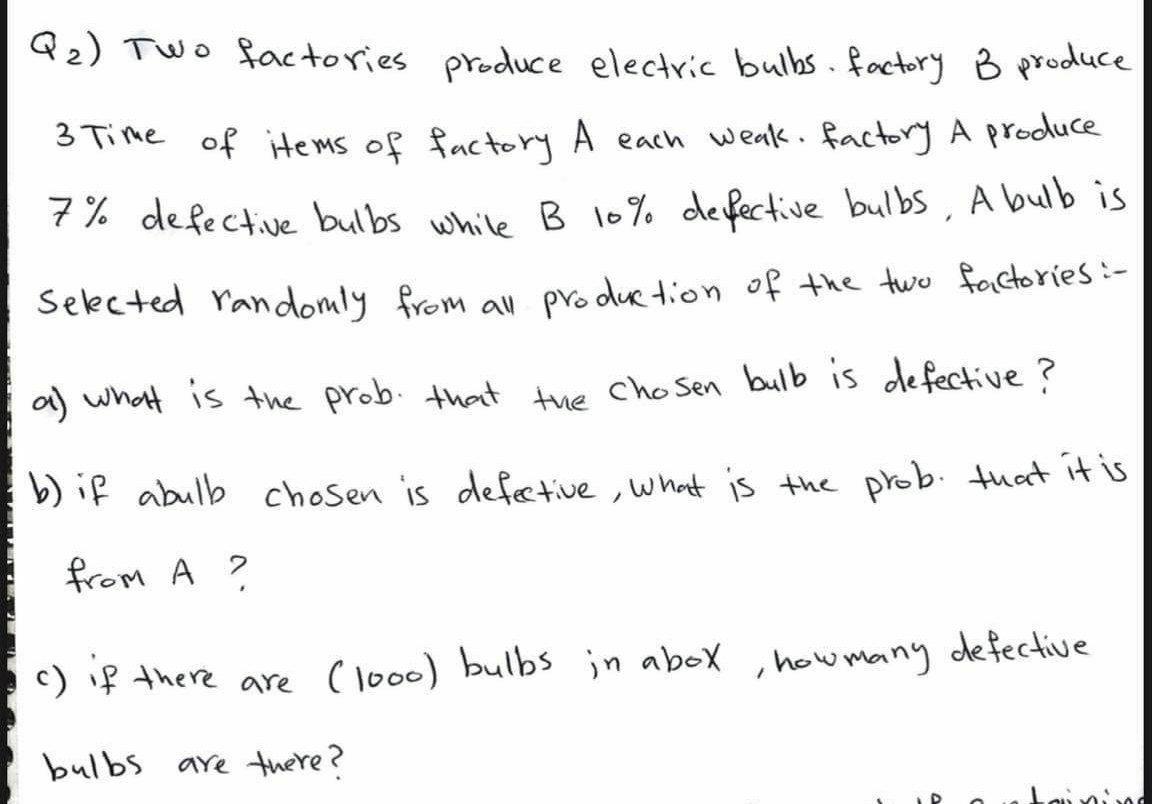 Q2) Two factories produce electric bulbs. factory B produce
3 Time of items of factory A each weak. factory A produce
7% defective bulbs while B 10% defective bulbs, A bulb is
Selected randomly from all production of the two factories:-
a) what is the prob. that the chosen bulb is defective?
b) if abulb chosen is defective, what is the prob. that it is
from A ?
c) if there are (1000) bulbs in abox, how many defective
bulbs are there?